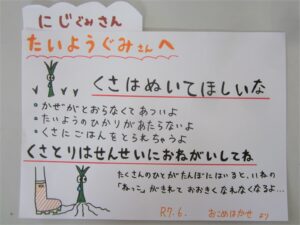 にじぐみさん
たいようぐみさんへ
くさはぬいてほしいな
・かぜがとおらなくてあついよ
・たいようのひかりがあたらないよ
・くさにごはんをとられちゃうよ
くさとりはせんせいにおねがいしてね
たくさんのひとがたんぼにはいると、いねの
「ねっこ」がきれておおきくなれなくなるよ…
R7.6. おこめはかせより